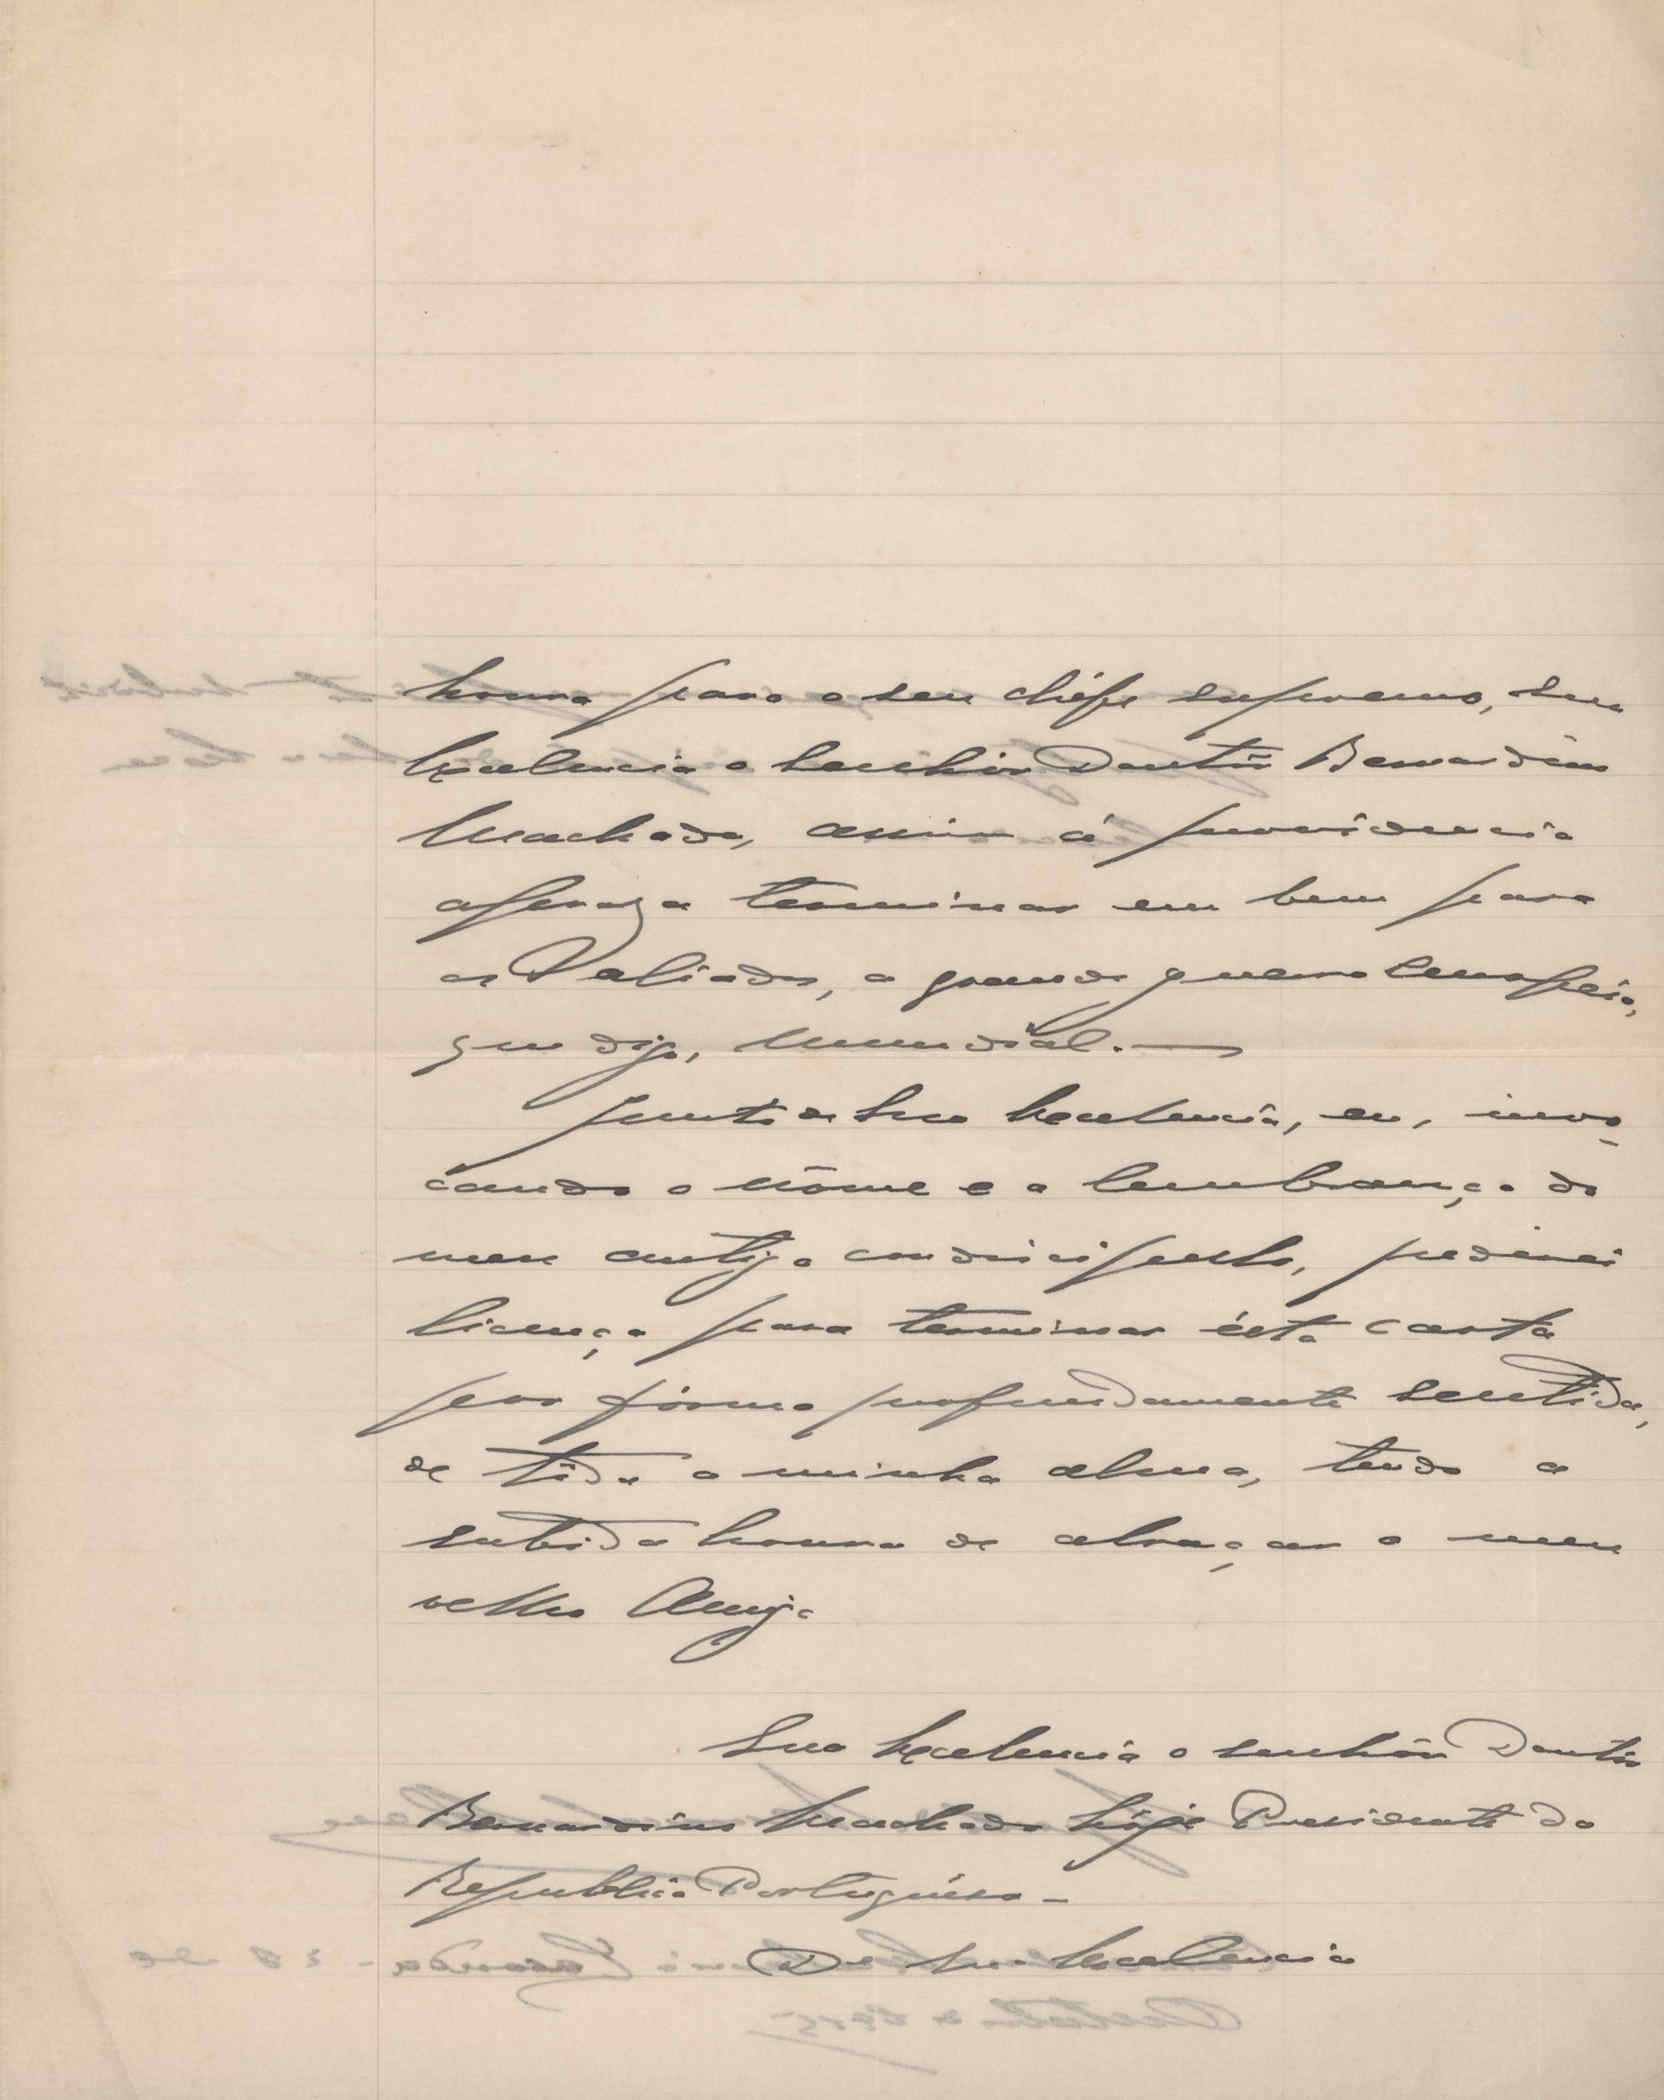 honra para o seu chéfe supremo, sua
Excelencia o Senhôr Doutôr Bernardino
Machado, assim á providencia
apraza terminar em bem para
os Aliados, a grande guerra Europeia,
que digo, Mundial.—
Junto de Sua Excelencia, eu, invo-
cando o nôme e a lembrança do
meu antigo condiscipulo, pedirei
licença para terminar ésta carta
por fórma profundamente sentida,
de tôda a minha alma, tendo a
subida honra de abraçar o meu
velho Amigo
Sua Excelencia o senhôr Doutôr
Bernardino Machado hôje Presidente da
Republica Portuguêsa -
De Sua Excelencia